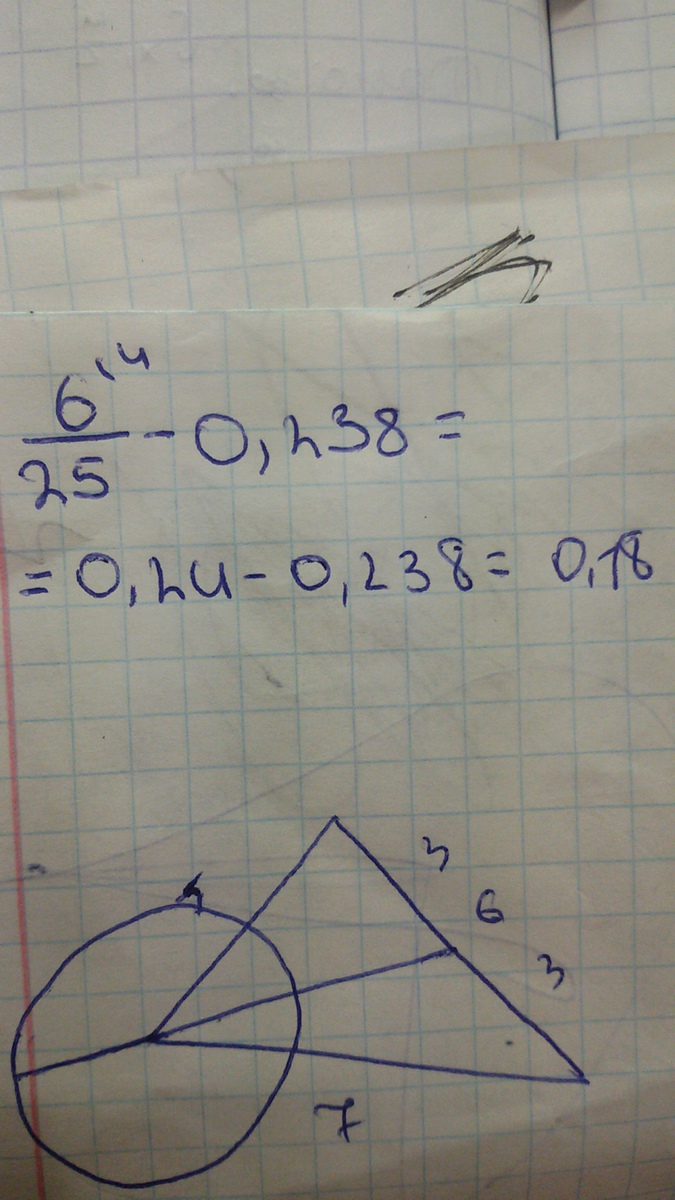 6^(4 / 25 - 0,238 =
= 0,24 - 0,238 = 0,18
3
6
3
7